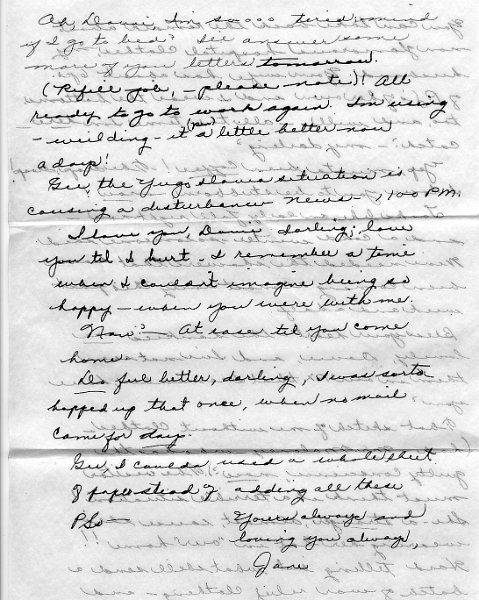 Ah, Danni I'm soooo tired, mind
if I go to bed? I'll answer some
more of your letters tomorrow.
(Refill job, - please note)! All
ready to go to work again. I'm using
- weilding - it (pen) a little better now
adays!
Gee, the Yugoslavia situation is
causing a disturbance news-, 1:00 P.M.
I love you, Danni darling; love
you til I hurt - I remember a time
when I couldn't imagine being so
happy - when you were with me.
Now? - At ease til you come
home.
Do feel better, darling, I was sorta
hopped up that once, when no mail
came for days.
Gee, I coulda used a whole sheet
of paper stead of adding all these
PSs - Yours always and
loving you always,
Jane